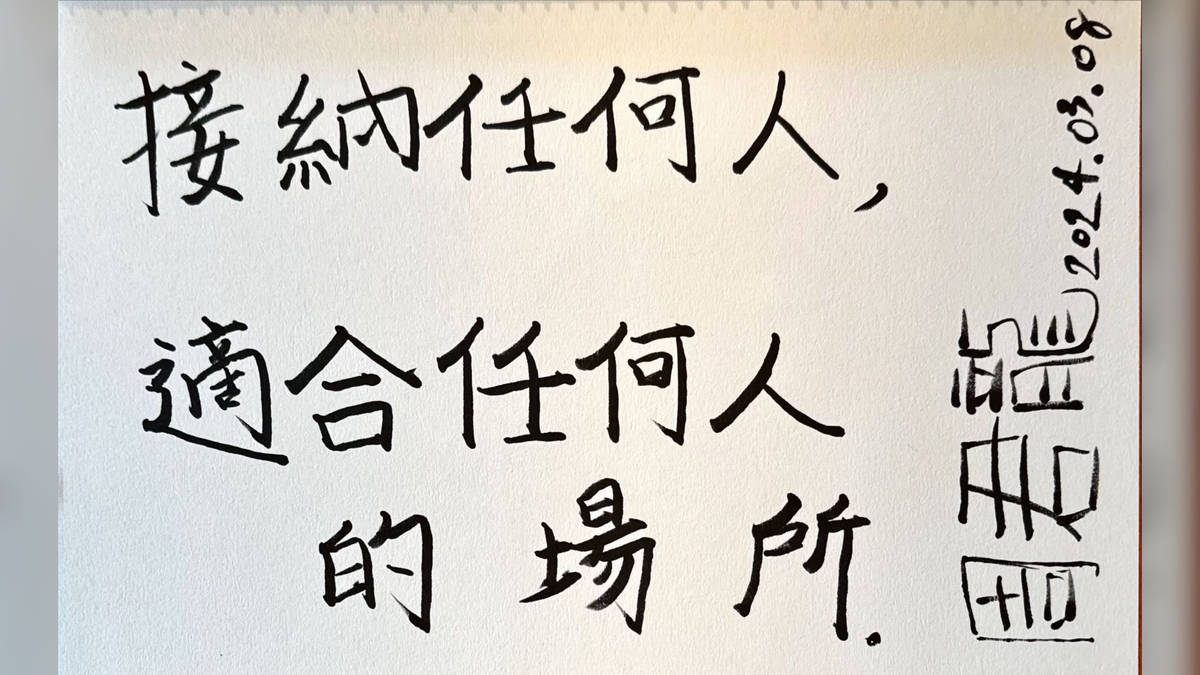 接納任何人,
適合任何人
的場所.
周君龍 2024.03.08